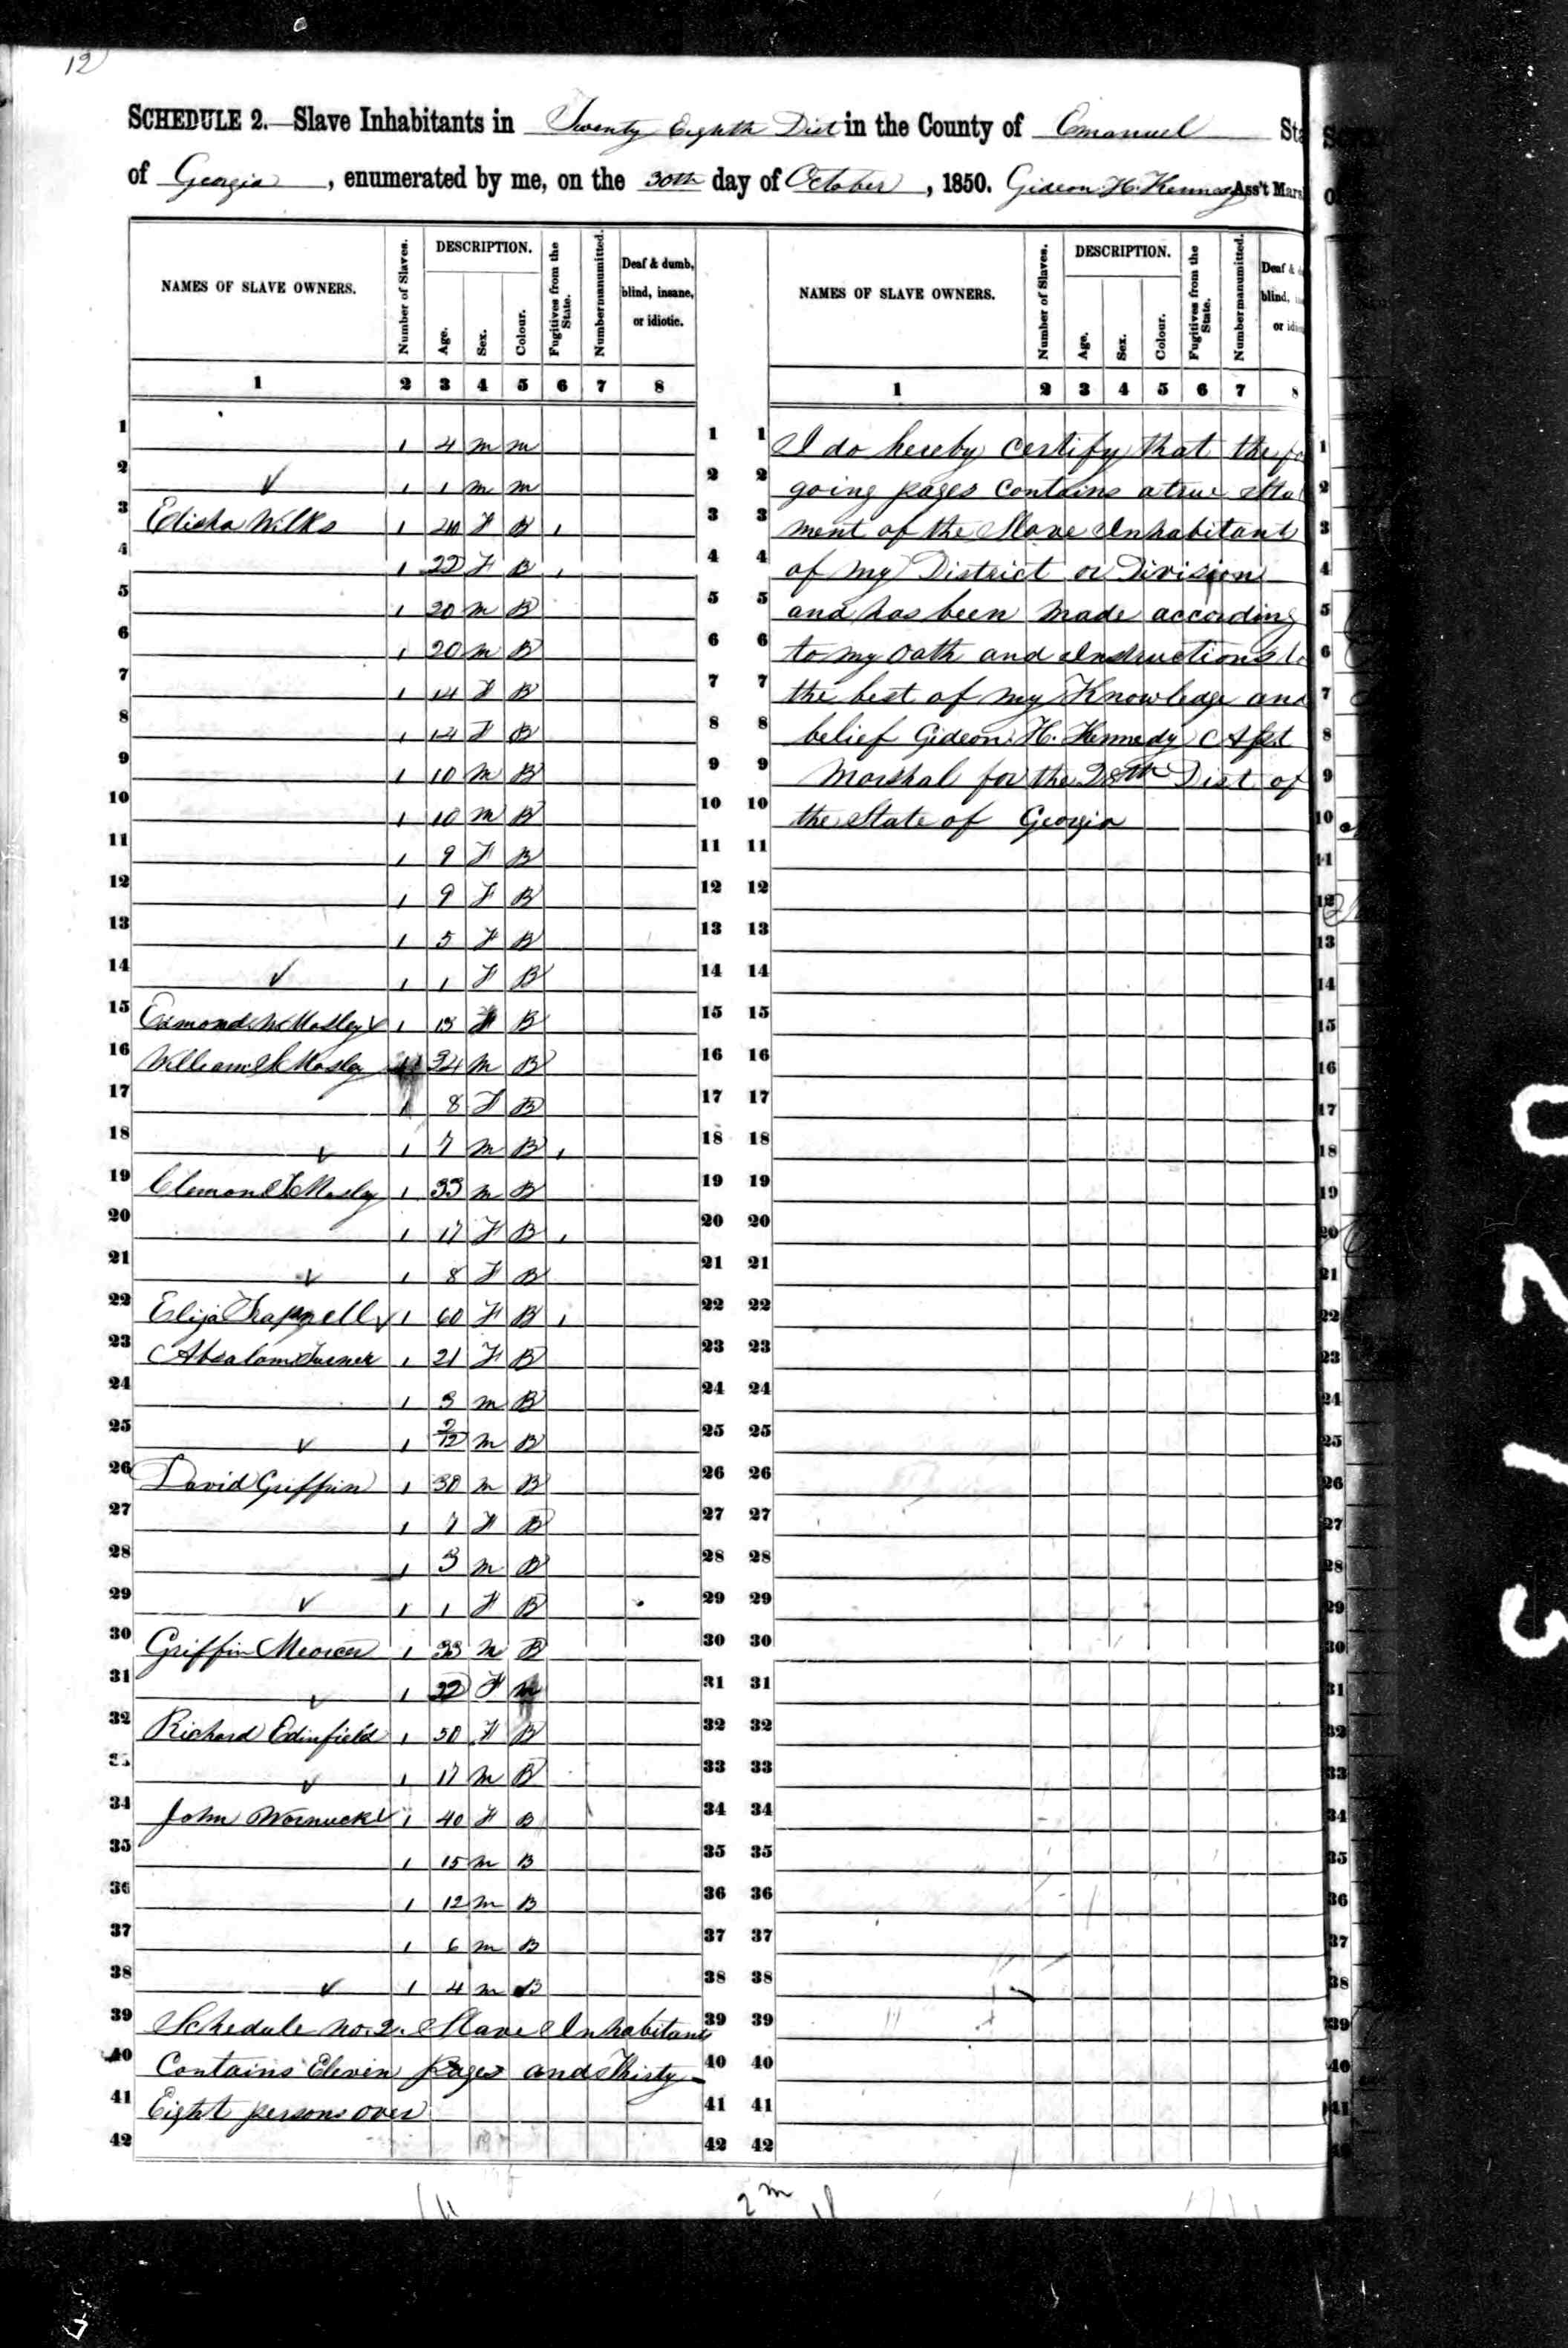 12
SCHEDULE 2.—Slave Inhabitants in Twenty Eighth Dist in the County of Emanuel Sta
of Georgia, enumerated by me, on the 30th day of October, 1850. Gideon H. Kennedy Ass't Mars
NAMES OF SLAVE OWNERS. Number of Slaves. DESCRIPTION. Age. Sex. Colour. Fugitives from the State. Number manumitted. Deaf & dumb, blind, insane, or idiotic.
1 2 3 4 5 6 7 8
1 1 4 m m 1
2 1 1 m m 2
3 Elisha Wilks 1 F B 1 3
4 1 22 F B 1 4
5 1 20 m B 5
6 1 20 m B 6
7 1 14 F B 7
8 1 F B 8
9 1 10 m B 9
10 1 10 m B 10
11 1 9 F B 11
12 1 9 F B 12
13 1 5 F B 13
14 1 1 F B 14
15 Edmond Mosley 1 13 B 15
16 William Mosley 34 m B 16
17 1 8 F B 17
18 1 7 m B 1 18
19 Clemon Mosley 1 33 m B 19
20 1 17 F B 1 20
21 1 8 F B 21
22 Eliza Trapnell 1 60 F B 1 22
23 Absalom Turner 1 21 F B 23
24 1 3 m B 24
25 1 2/12 m B 25
26 David Griffin 1 30 m B 26
27 1 7 F B 27
28 1 3 m B 28
29 1 1 F B 29
30 Griffin Mercer 1 33 m B 30
31 1 22 F m 31
32 Richard Edinfield 1 50 F B 32
33 1 17 m B 33
34 John Wornuck 1 40 F B 34
35 1 15 m B 35
36 1 12 m B 36
37 1 6 m B 37
38 1 4 m B 38
39 Schedule no. 2. Slave Inhabitants 39
40 Contains Eleven pages and Thirty 40
41 Eight persons over 41
42 42
NAMES OF SLAVE OWNERS. Number of Slaves. DESCRIPTION. Age. Sex. Colour. Fugitives from the State. Number manumitted. Deaf & blind, or
1 2 3 4 5 6 7 8
1 I do hereby certify that the fo
2 going pages contains a true Sta
3 ment of the Slave Inhabitant
4 of my District or Division
5 and has been made according
6 to my oath and Instructions to
7 the best of my Knowledge and
8 belief Gideon H. Kennedy Asst
9 Marshal for the 28th Dist of
10 the State of Georgia
11
12
13
14
15
16
17
18
19
20
21
22
23
24
25
26
27
28
29
30
31
32
33
34
35
36
37
38
39
40
41
42
2 m
0213